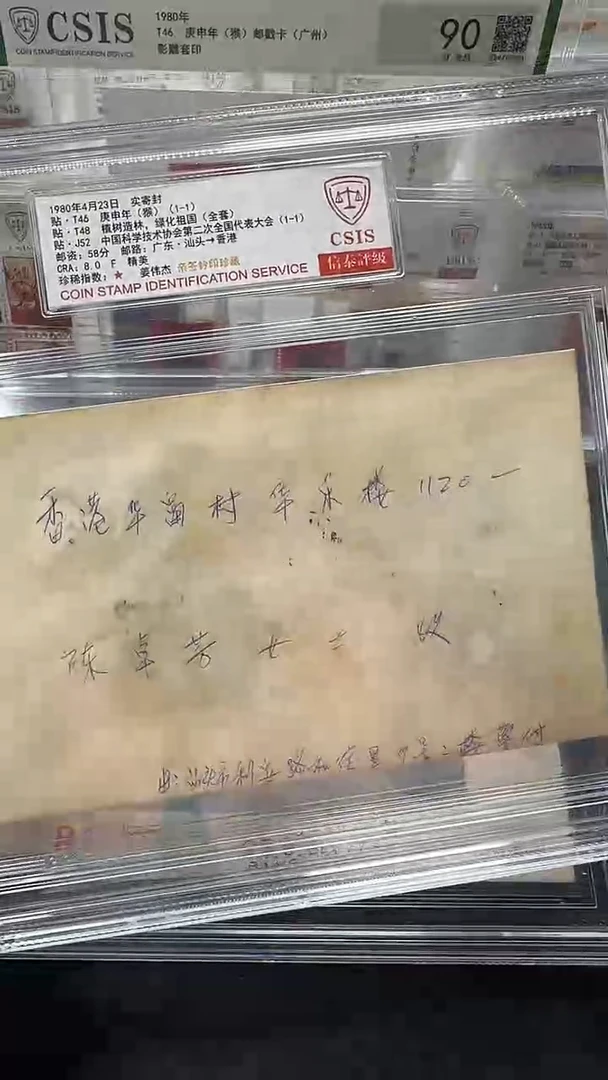 CSIS
COIN STAMP IDENTIFICATION SERVICE
1980年
T46 庚申年（猴）邮戳卡（广州）
影雕套印
90
1980年4月23日 实寄封
贴·T46 庚申年（猴）（1-1）
贴·T48 植树造林，绿化祖国（全套）
贴·J52 中国科学技术协会第二次全国代表大会（1-1）
邮资：58分 邮路：广东·汕头→香港
CRA：8.0 F 精美
珍稀指数：★ 姜伟杰 亲签钤印珍藏
COIN STAMP IDENTIFICATION SERVICE
CSIS
信泰评级
香港华富村华 楼1120一
陈卓芳女士 收
由：汕头市利 路 里 号二楼 付